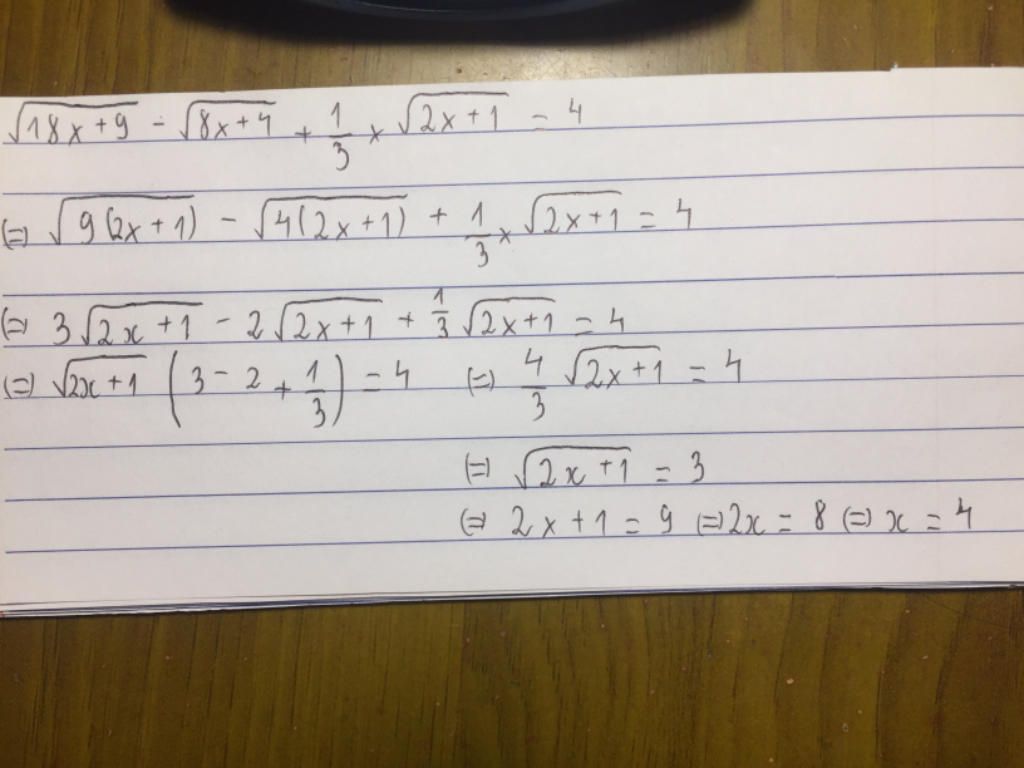 √(18x+9) - √(8x+4) + 1/3 × √(2x+1) = 4
(=) √(9(2x+1)) - √(4(2x+1)) + 1/3 × √(2x+1) = 4
(=) 3√(2x+1) - 2√(2x+1) + 1/3 √(2x+1) = 4
(=) √(2x+1) (3 - 2 + 1/3) = 4 (=) 4/3 √(2x+1) = 4
(=) √(2x+1) = 3
(=) 2x+1 = 9 (=) 2x = 8 (=) x = 4